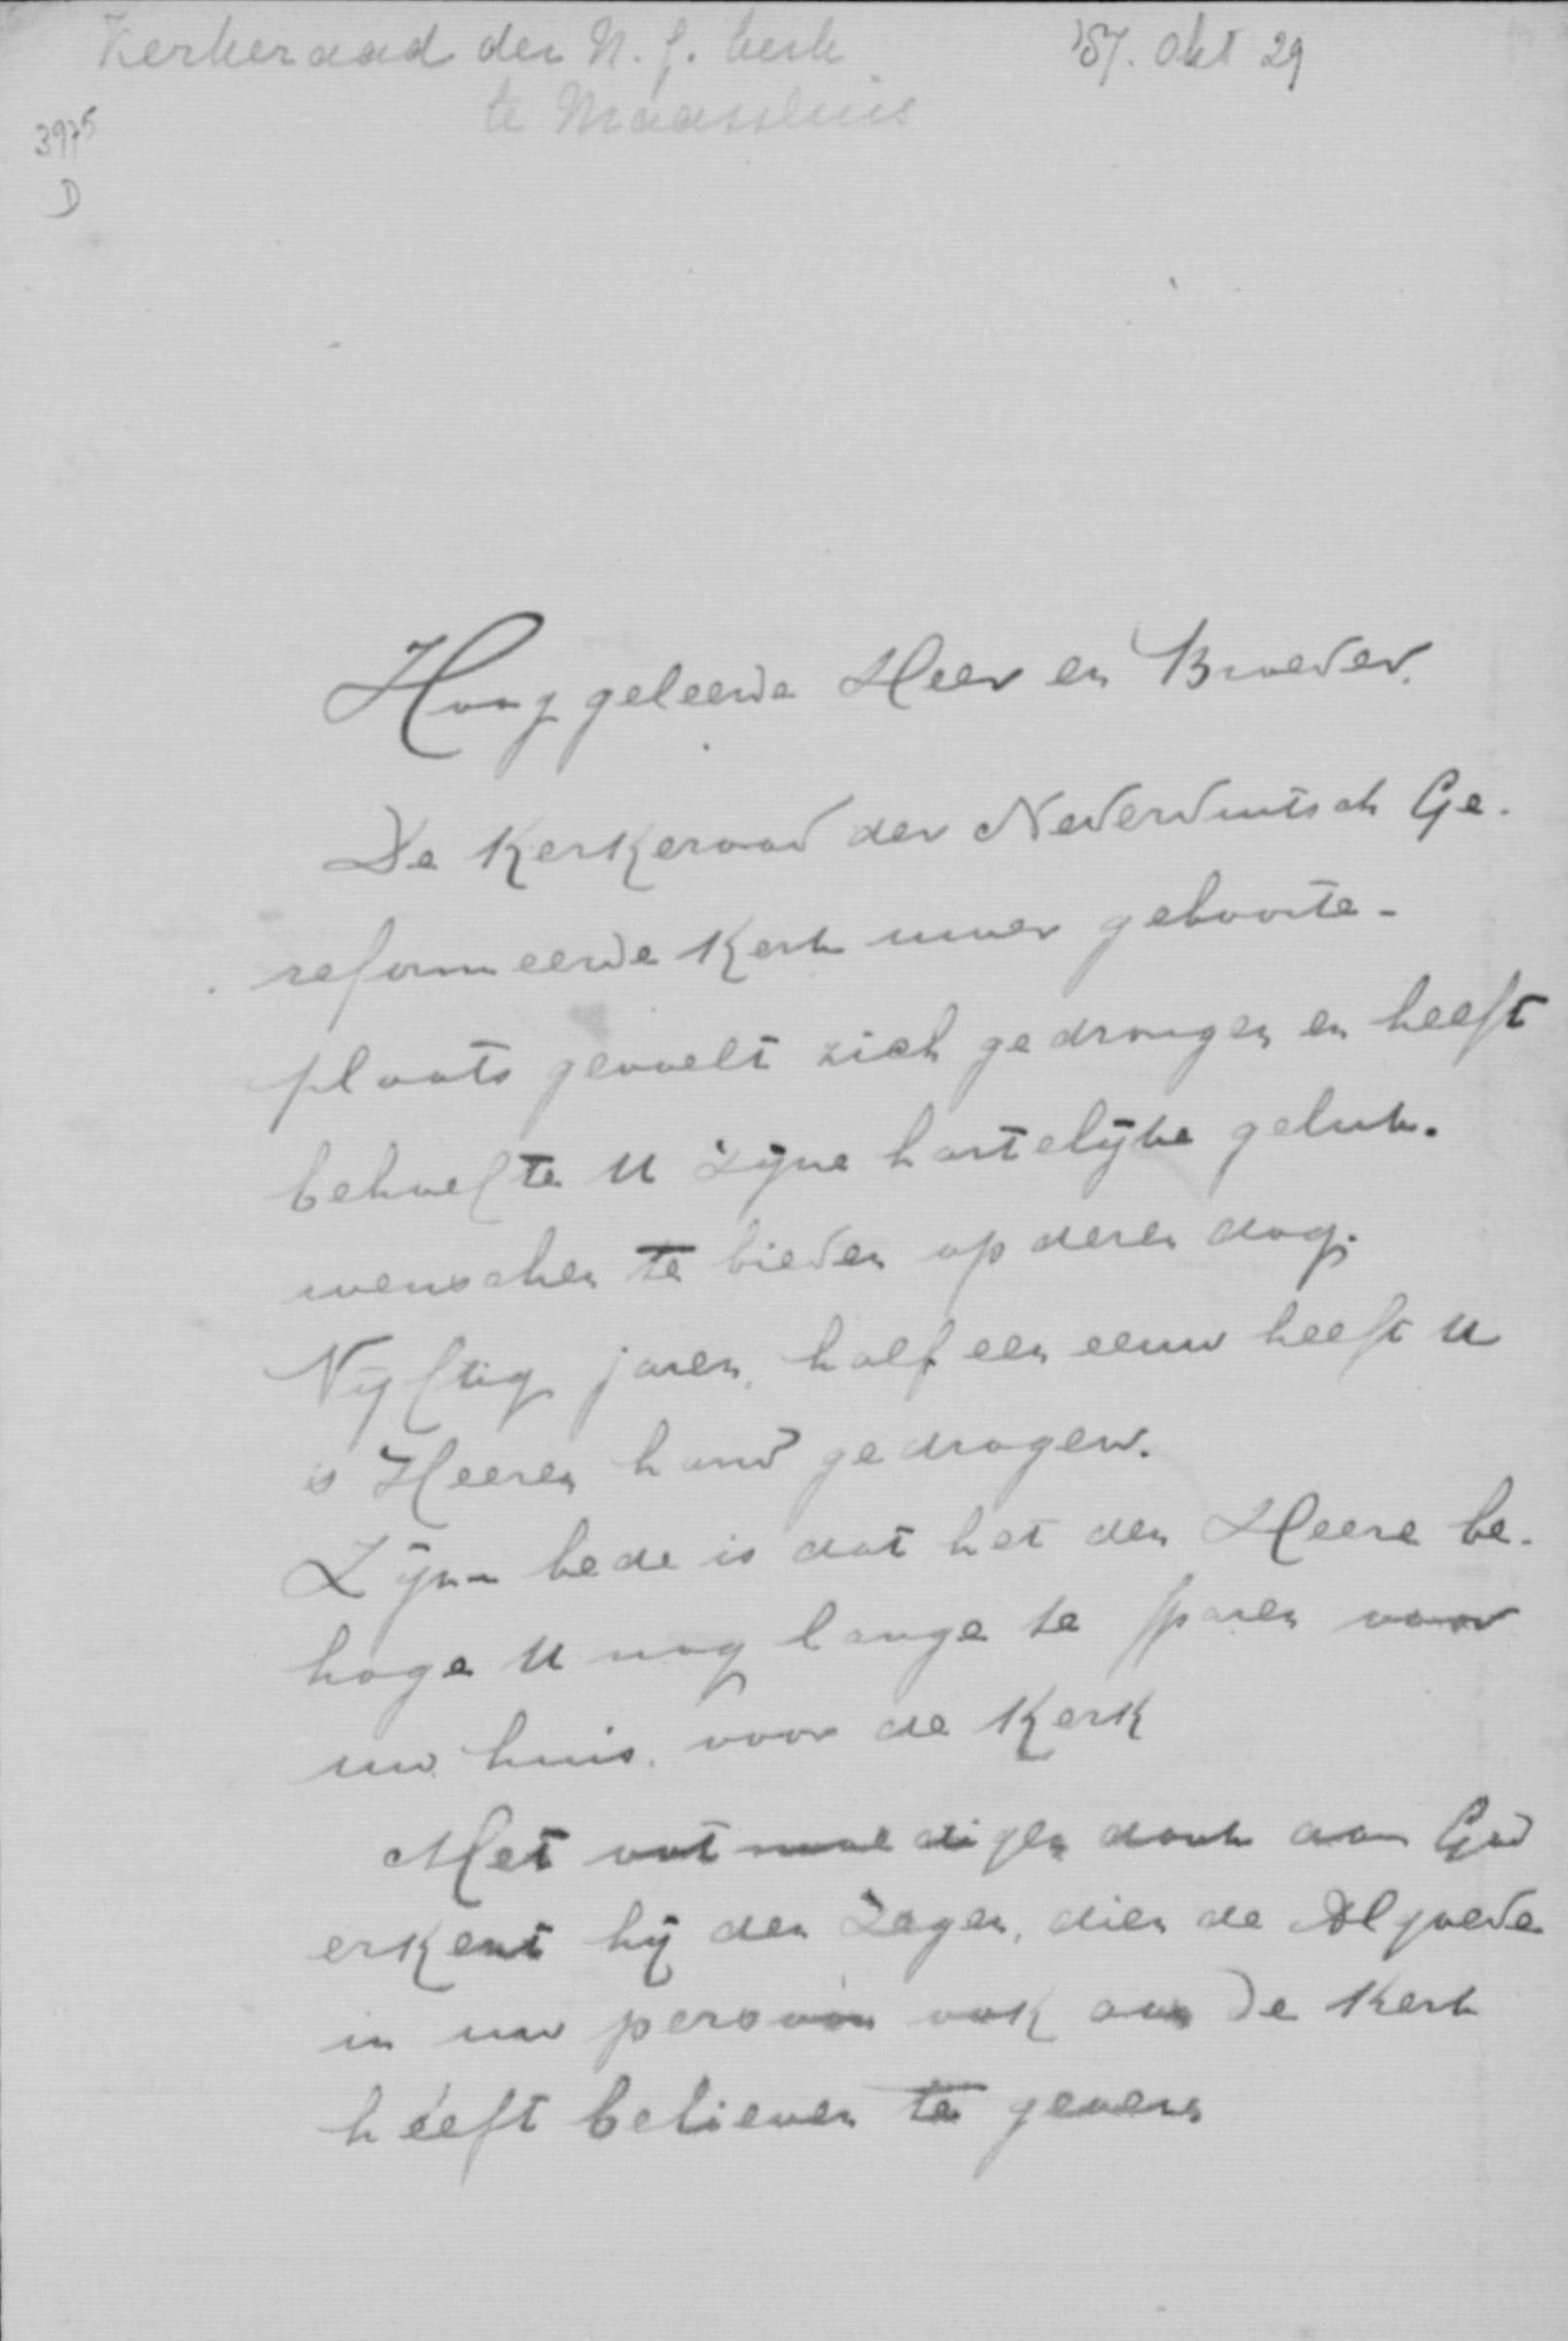 Kerkeraad der N. G. kerk
'87. Okt 29
te Maassluis
3975
D
Hooggeleerde Heer en Broeder.
De Kerkeraad der Nederduitsch Ge-
reformeerde Kerk uwer geboorte-
plaats gevoelt zich gedrongen en heeft
behoefte U zijne hartelijke geluk-
wenschen te bieden op dezen dag.
Vijftig jaren, half een eeuw heeft U
's Heeren hand gedragen.
Zijne bede is dat het den Heere be-
hage U nog lange te sparen voor
uw huis. voor de Kerk
Met ootmoedigen dank aan God
erkent hij den Zegen, dien de Algoede
in uw persoon ook aan de Kerk
heeft believen te geven